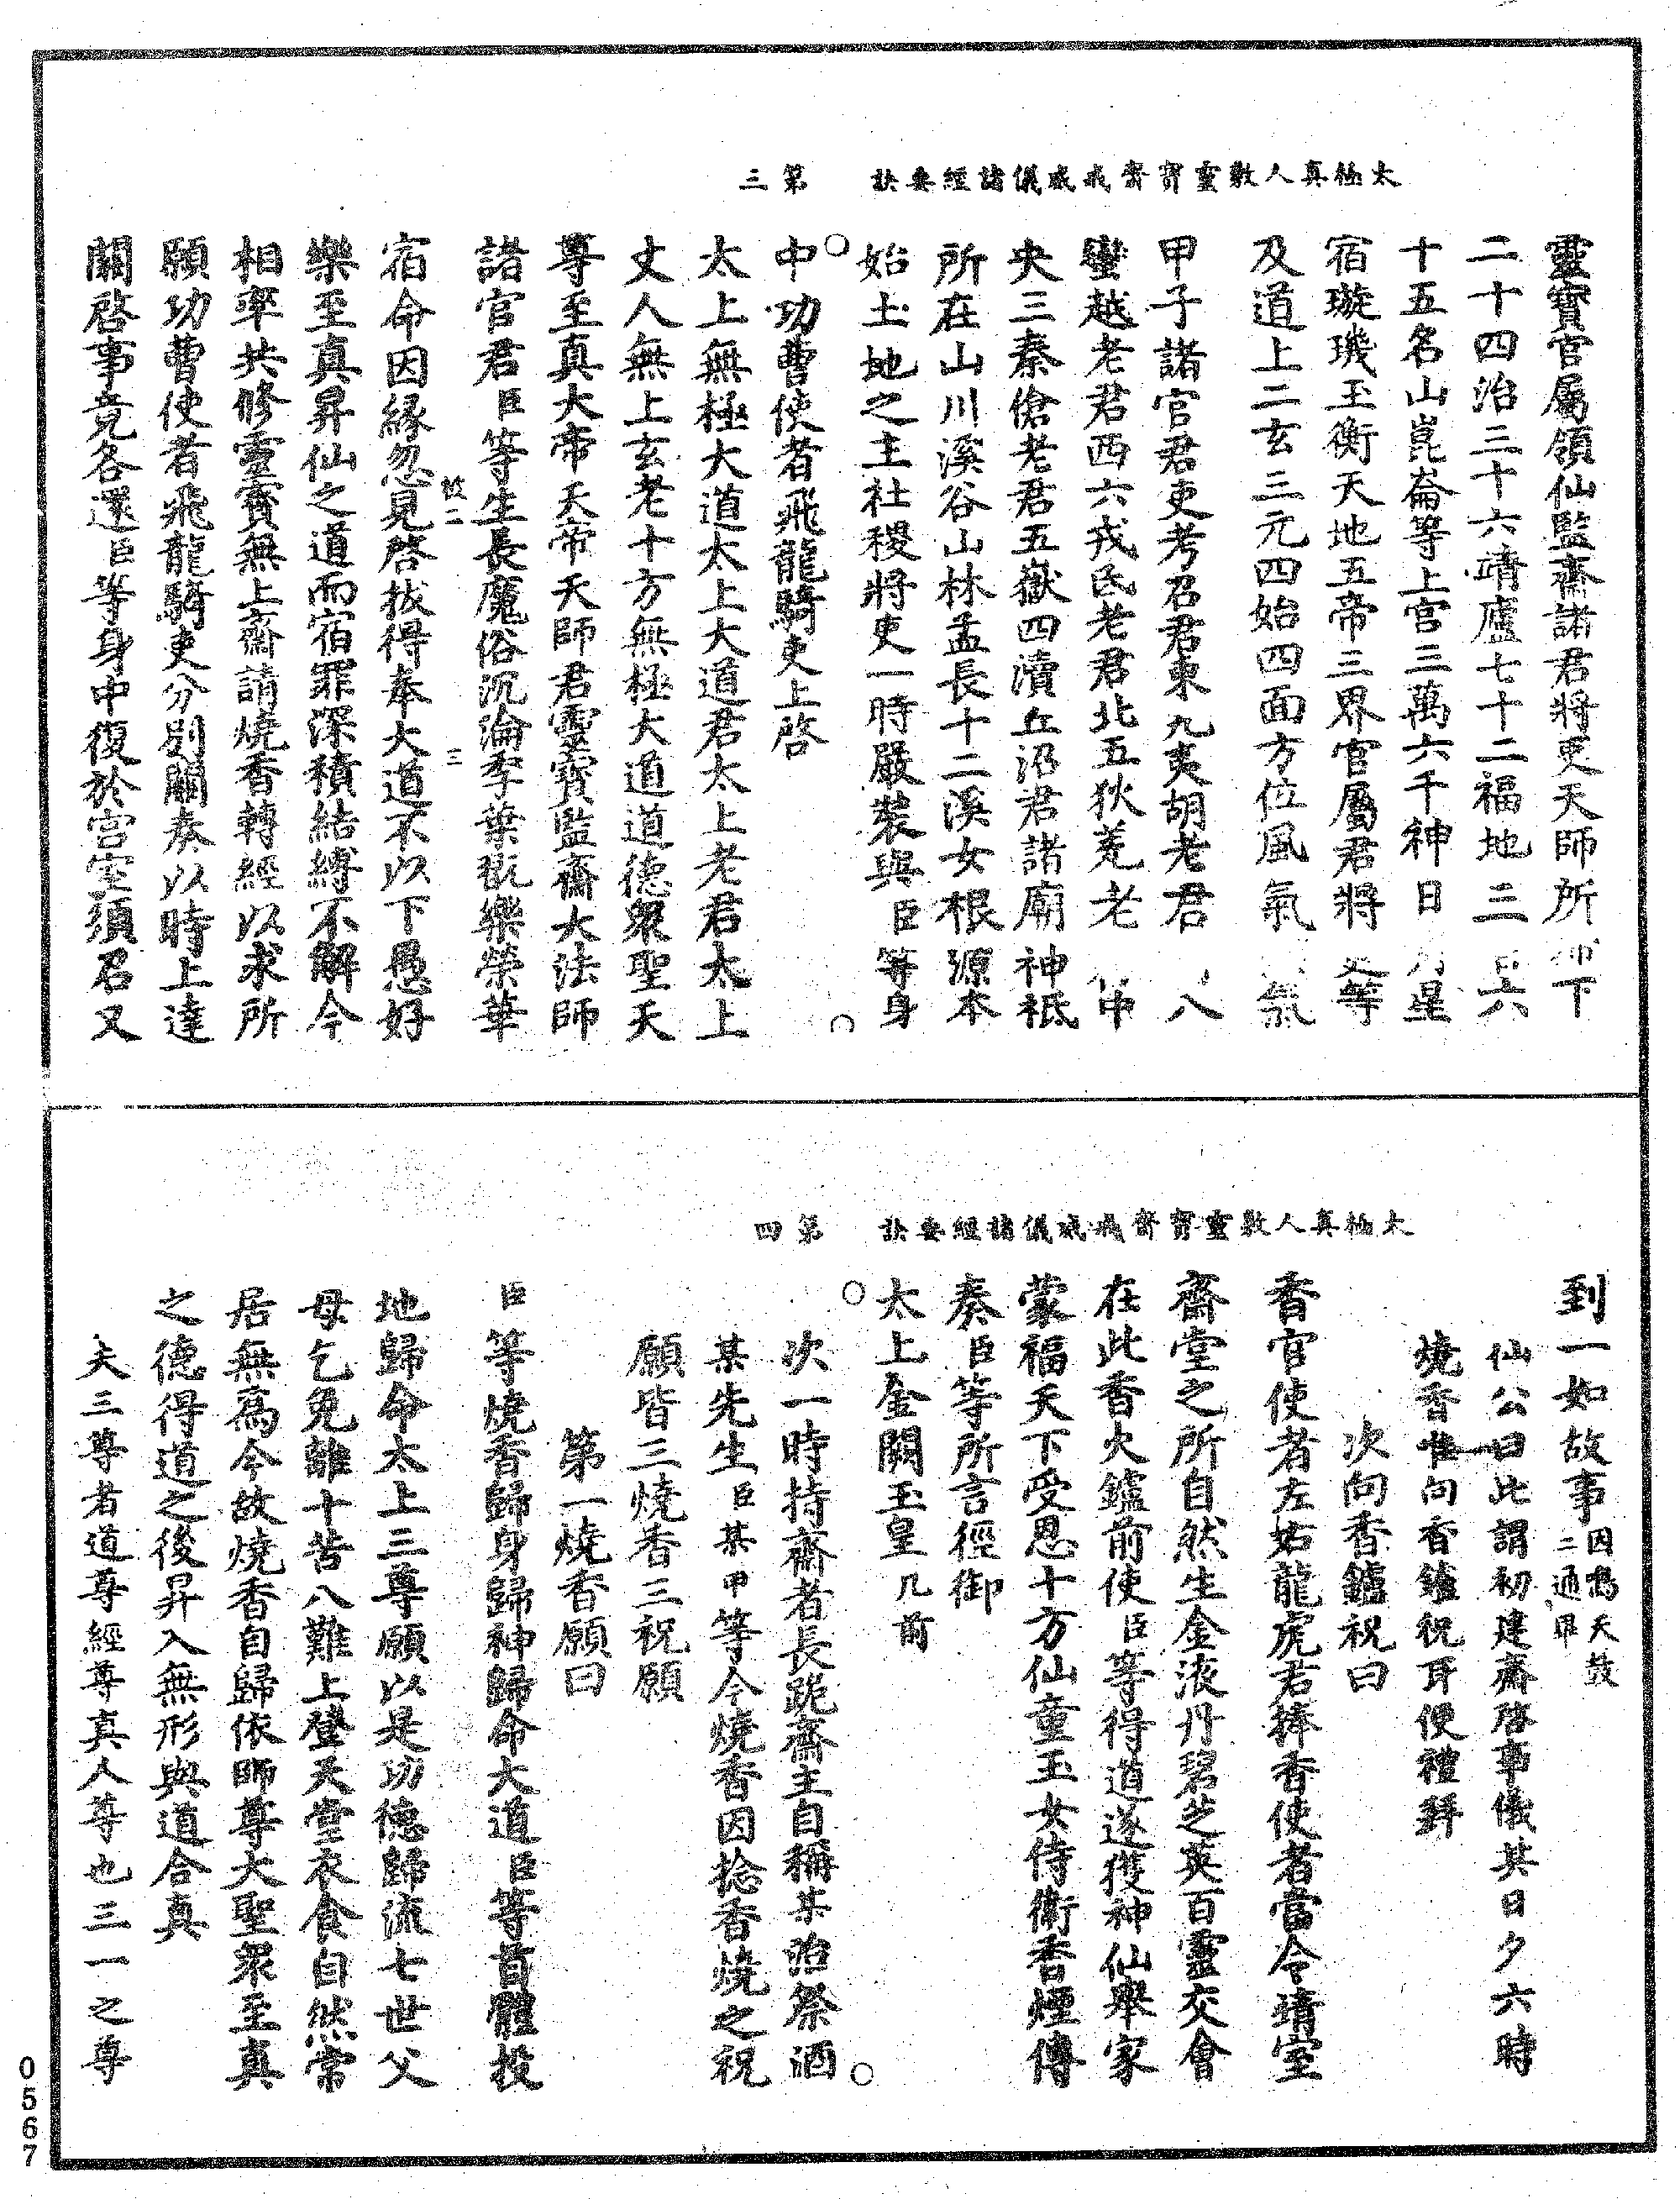 太極真人敷靈寶齋戒威儀諸經要訣　第三
靈寶官屬領仙監齋諸君將吏天師所布下
二十四治三十六靖廬七十二福地三百六
十五名山崑崙等上宮三萬六千神日月星
宿璇璣玉衡天地五帝三界官屬君將吏等
及道上二玄三元四始四面方位風氣注氣
甲子諸官君吏考召君東九夷胡老君南八
蠻越老君西六戎氐老君北五狄羌老君中
央三秦傖老君五嶽四瀆丘沼君諸廟神祇
所在山川溪谷山林孟長十二溪女根源本
始土地之主社稷將吏一時嚴裝與臣等身
中功曹使者飛龍騎吏上啓
太上無極大道太上大道君太上老君太上
丈人無上玄老十方無極大道道德衆聖天
尊至真大帝天帝天師君靈寶監齋大法師
諸官君臣等生長魔俗沉淪季葉翫樂榮華
宿命因緣忽見啓拔得奉大道不以下愚好
樂至真昇仙之道而宿罪深積結縛不解今
相率共修靈寶無上齋請燒香轉經以求所
願功曹使者飛龍騎吏分別關奏以時上達
關啓事竟各還臣等身中復於宮室須召又
三
太極真人敷靈寶齋戒威儀諸經要訣　第四
到一如故事因鳴天鼓二通畢
仙公曰此謂初建齋啓事儀其日夕六時
燒香惟向香鑪祝耳便禮拜
次向香鑪祝曰
香官使者左右龍虎君捧香使者當令靖室
齋堂之所自然生金液丹碧芝英百靈交會
在此香火鑪前使臣等得道遂獲神仙舉家
蒙福天下受恩十方仙童玉女侍衛香煙傳
奏臣等所言徑御
太上金闕玉皇几前
次一時持齋者長跪齋主自稱某治祭酒
某先生臣某甲等今燒香因捻香燒之祝
願皆三燒香三祝願
第一燒香願曰
臣等燒香歸身歸神歸命大道臣等首體投
地歸命太上三尊願以是功德歸流七世父
母乞免離十苦八難上登天堂衣食自然常
居無為今故燒香自歸依師尊大聖衆至真
之德得道之後昇入無形與道合真
夫三尊者道尊經尊真人尊也三一之尊
0567